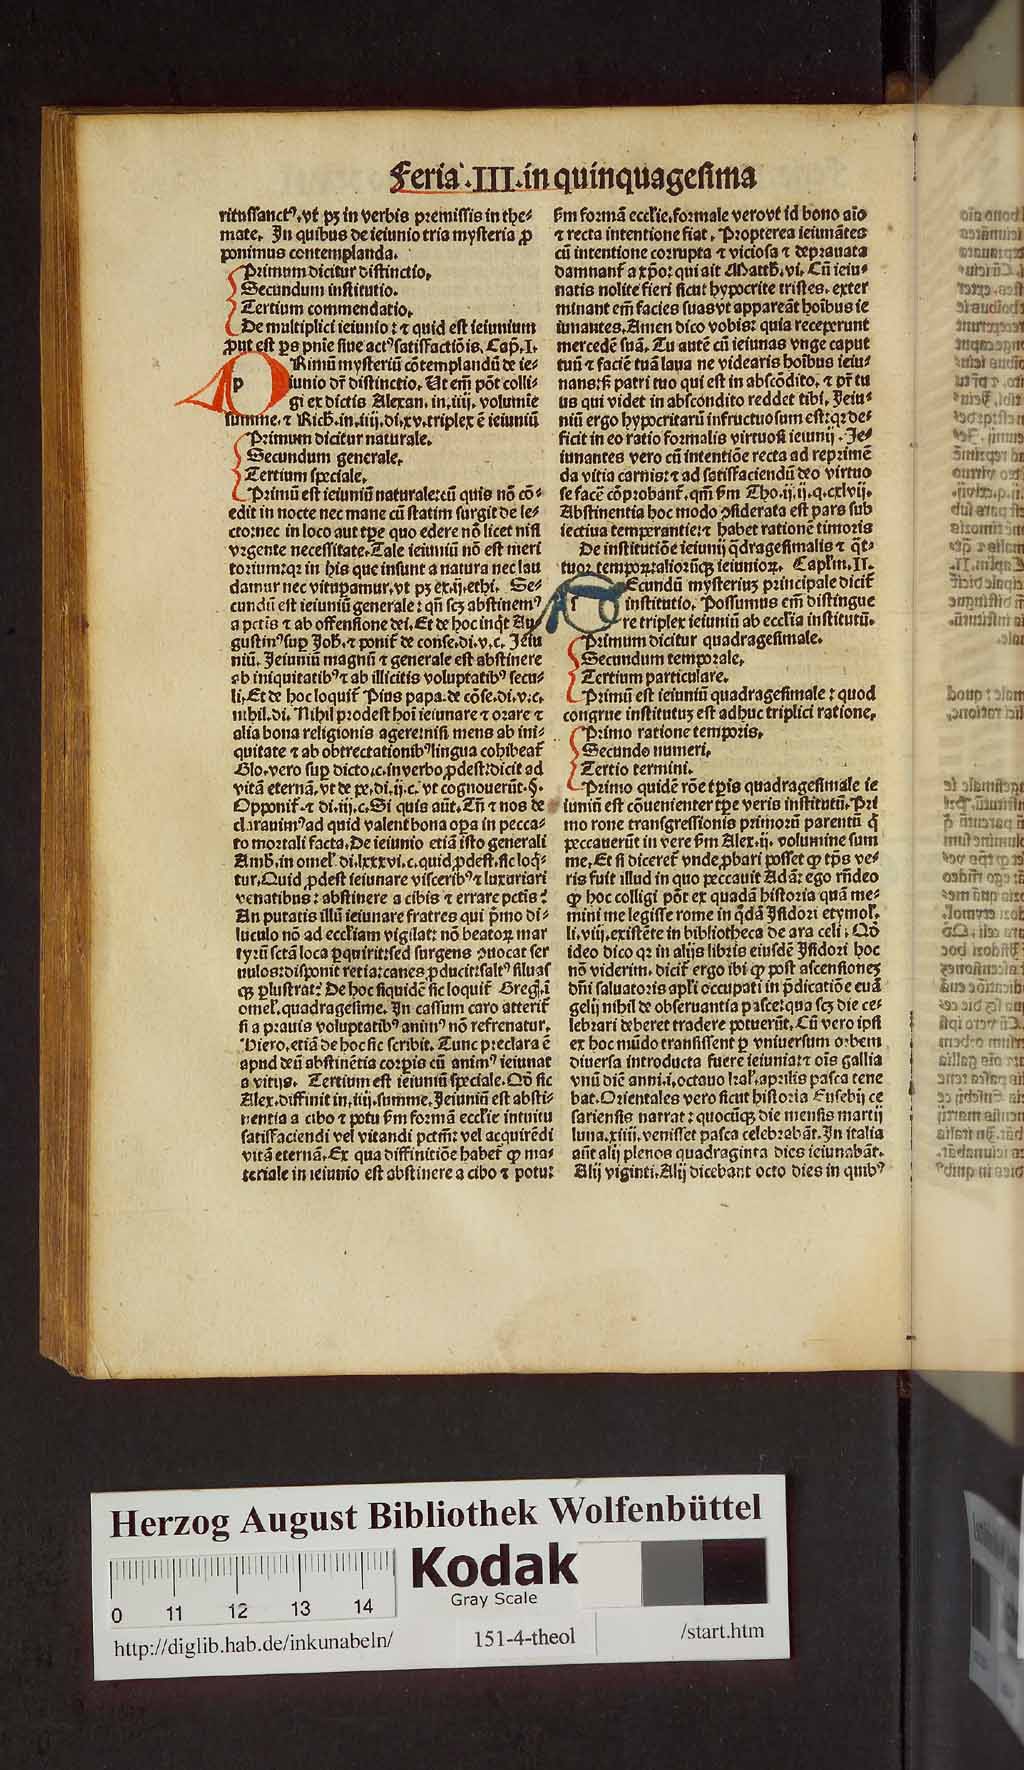 Feria .III. in quinquagesima
ritussanctꝰ. vt pꝫ in verbis premissis in the-
mate. In quibus de ieiunio tria mysteria ꝓ
ponimus contemplanda.
Primum dicitur distinctio.
Secundum institutio.
Tertium commendatio.
De multiplici ieiunio: ⁊ quid est ieiunium
ꝓut est ꝑs pnīe siue actꝰ satisfactiōis. Cap. I.
pRimū mysteriū cōtemplandū de ie-
iunio dr̄ distinctio. Ut em̄ pōt colli-
gi ex dictis Alexan. in. iiij. volumie
summe. ⁊ Rich. in. iiij. di. xv. triplex ē ieiuniū
Primum dicitur naturale.
Secundum generale.
Tertium speciale.
Primū est ieiuniū naturale: cū quis nō cō-
edit in nocte nec mane cū statim surgit de le-
cto: nec in loco aut tꝑe quo edere nō licet nisi
vrgente necessitate. Tale ieiuniū nō est meri
torium: qꝛ in his que insunt a natura nec lau
damur nec vituꝑamur. vt pꝫ ex. ij. ethi. Se-
cundū est ieiuniū generale: qn̄ scꝫ abstinemꝰ
a pctis ⁊ ab offensione dei. Et de hoc inqt Au
gustinꝰ suꝑ Joh. ⁊ ponit̄ de conse. di. v. c. Jeiu
niū. Jeiuniū magnū ⁊ generale est abstinere
ab iniquitatibꝰ ⁊ ab illicitis voluptatibꝰ secu-
li. Et de hoc loquit̄ Pius papa. de cōse. di. v. c.
nihil. di. Nihil prodest hoī ieiunare ⁊ orare ⁊
alia bona religionis agere: nisi mens ab ini-
quitate ⁊ ab obtrectationibꝰ lingua cohibeat̄
Glo. vero suꝑ dicto. c. in verbo ꝓdest: dicit ad
vitā eternā. vt de pe. di. ij. c. vt cognouerūt. §.
Opponit̄. ⁊ di. iij. c. Si quis aūt. Tn̄ ⁊ nos de
clarauimꝰ ad quid valent bona oꝑa in pecca-
to mortali facta. De ieiunio etiā isto generali
Amb. in omel̄. di. lxxxvi. c. quid ꝓdest. sic loq̄-
tur. Quid ꝓdest ieiunare visceribꝰ ⁊ luxuriari
venatibus: abstinere a cibis ⁊ errare pctis?
An putatis illū ieiunare fratres qui pͥmo di-
luculo nō ad eccl̄iam vigilat: nō beatoꝝ mar
tyrū sctā loca ꝑquirit: sed surgens ꝓuocat ser
uulos: disponit retia: canes ꝓducit: saltꝰ siluas
qꝫ ꝑlustrat? De hoc siquidē sic loquit̄ Greg. ī
omel̄. quadragesime. In cassum caro atterit̄
si a prauis voluptatibꝰ animꝰ nō refrenatur.
Hiero. etiā de hoc sic scribit. Tunc preclara ē
apud deū abstinētia corꝑis cū animꝰ ieiunat
a vitijs. Tertium est ieiuniū speciale. Qd̄ sic
Alex. diffinit in. iiij. summe. Jeiuniū est absti-
nentia a cibo ⁊ potu ẜm formā eccl̄ie intuitu
satisfaciendi vel vitandi pctm̄: vel acquirēdi
vitā eternā. Ex qua diffinitiōe habet̄ ꝙ ma-
teriale in ieiunio est abstinere a cibo ⁊ potu:
ẜm formā eccl̄ie. formale vero vt id bono aīo
⁊ recta intentione fiat. Propterea ieiunātes
cū intentione corrupta ⁊ viciosa ⁊ deprauata
damnant̄ a xp̄o: qui ait Matth. vi. Cū ieiu-
natis nolite fieri sicut hypocrite tristes. exter
minant em̄ facies suas vt appareāt hoībus ie
iunantes. Amen dico vobis: quia receperunt
mercedē suā. Tu autē cū ieiunas vnge caput
tuū ⁊ faciē tuā laua ne videaris hoībus ieiu-
nans: sꝫ patri tuo qui est in abscōdito. ⁊ pr̄ tu
us qui videt in abscondito reddet tibi. Jeiu-
niū ergo hypocritarū infructuosum est: qꝛ de-
ficit in eo ratio formalis virtuosi ieiunij. Je-
iunantes vero cū intentiōe recta ad reprimē
da vitia carnis: ⁊ ad satisfaciendū deo virtuo
se facē cōprobant̄. qm̄ ẜm Tho. ij. ij. q. cxlvij.
Abstinentia hoc modo ꝯsiderata est pars sub
iectiua temperantie: ⁊ habet rationē timoris
De institutiōe ieiunij q̄dragesimalis ⁊ q̄t-
tuor temporaliorūqꝫ ieiunioꝝ. Capl̄m. II.
sEcundū mysteriuꝫ principale dicit̄
institutio. Possumus em̄ distingue
re triplex ieiuniū ab eccl̄ia institutū.
Primum dicitur quadragesimale.
Secundum temporale.
Tertium particulare.
Primū est ieiuniū quadragesimale: quod
congrue institutuꝫ est adhuc triplici ratione.
Primo ratione temporis.
Secundo numeri.
Tertio termini.
Primo quidē rōe tꝑis quadragesimale ie
iuniū est cōuenienter tꝑe veris institutū. Pri
mo rone transgressionis primorū parentū q̄
peccauerūt in vere ẜm Alex. ij. volumine sum
me. Et si diceret̄ vnde ꝓbari posset ꝙ tp̄s ve-
ris fuit illud in quo peccauit Adā: ego rn̄deo
ꝙ hoc colligi pōt ex quadā historia quā me-
mini me legisse rome in q̄dā Jsidori etymol̄.
li. viij. existēte in bibliotheca de ara celi. Qd̄
ideo dico qꝛ in alijs libris eiusdē Jsidori hoc
nō viderim. dicit̄ ergo ibi ꝙ post ascensioneꝫ
dn̄i saluatoris apl̄i occupati in p̄dicatiōe euā
gelij nihil de obseruantia pasce: qua scꝫ die ce-
lebrari deberet tradere potuerūt. Cū vero ipsi
ex hoc mūdo transissent ꝑ vniuersum orbem
diuersa introducta fuere ieiunia: ⁊ oīs gallia
vnū diē anni. i. octauo kal̄. aprilis pasca tene
bat. Orientales vero sicut historia Eusebij ce
sariensis narrat: quocūqꝫ die mensis martij
luna. xiiij. venisset pasca celebrabāt. In italia
aūt alij plenos quadraginta dies ieiunabāt.
Alij viginti. Alij dicebant octo dies in quibꝰ
Herzog August Bibliothek Wolfenbüttel
Kodak
Gray Scale
0 11 12 13 14
http://diglib.hab.de/inkunabeln/ 151-4-theol /start.htm